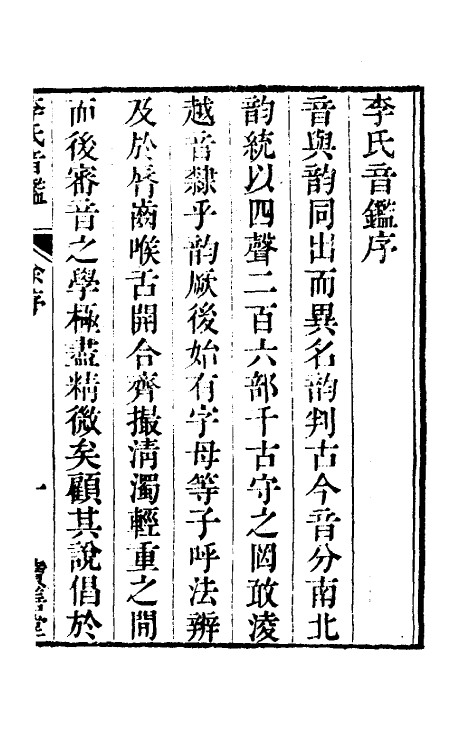 李氏音鑑序
音與韵同出而異名韵判古今音分南北
韵統以四聲二百六部千古守之罔敢淩
越音隸乎韵厥後始有字母等子呼法辨
及於脣齒喉舌開合齊撮清濁輕重之間
而後審音之學極盡精微矣顧其說倡於
李氏音鑑
余序
一
寶善堂